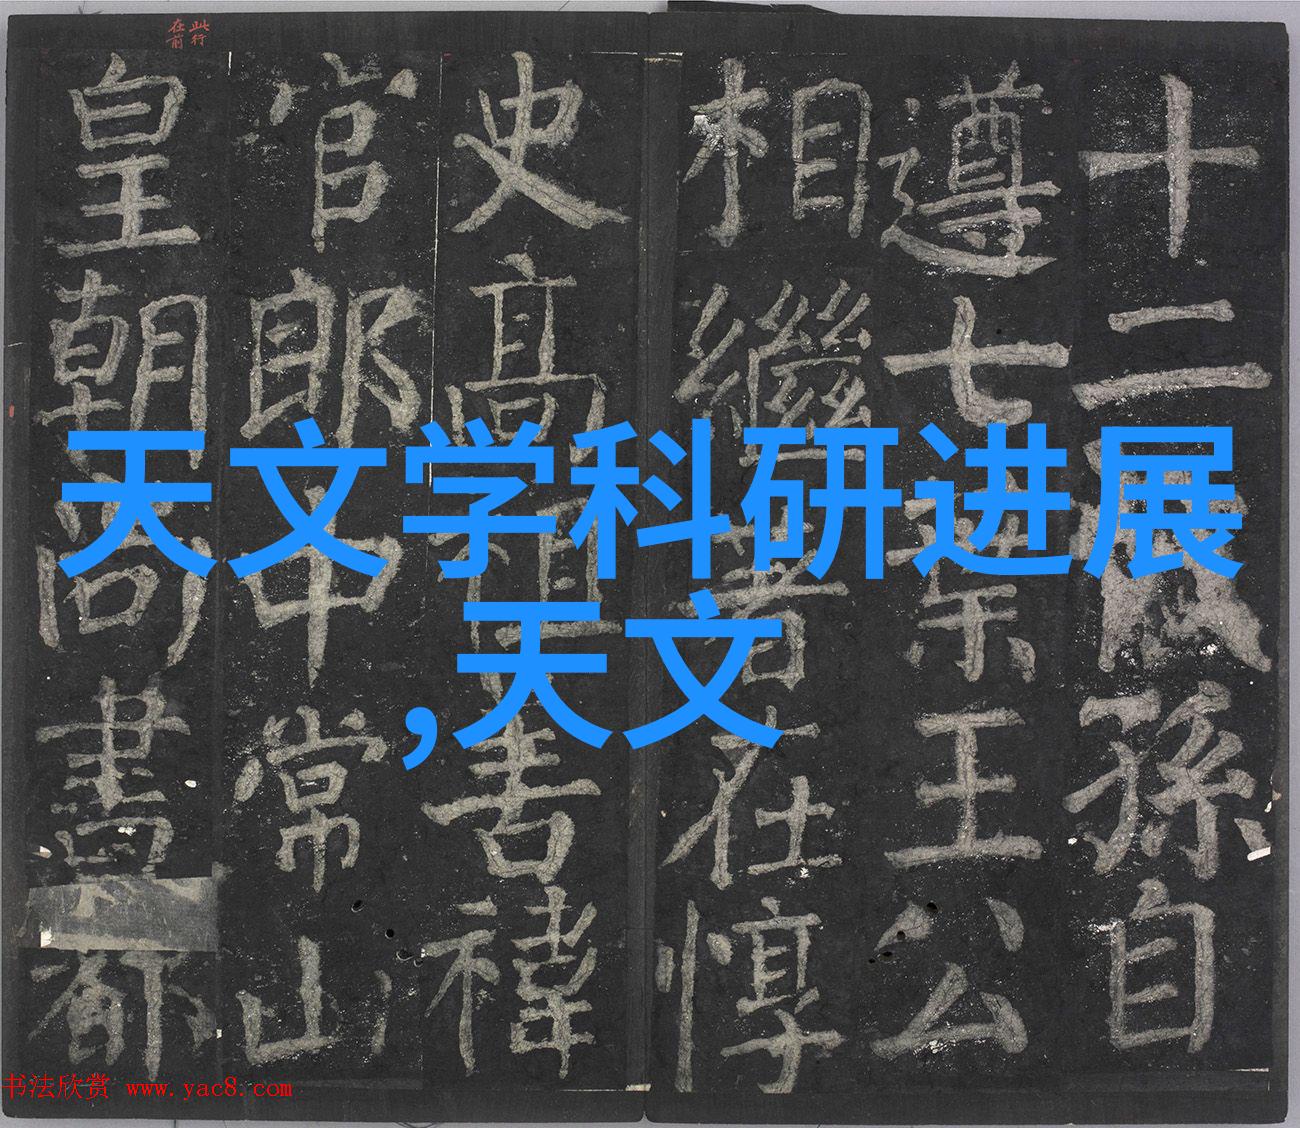 天文学科研进展
,天文
十二孫自
遵七葉王公
相繼著在惇
史高祖禕
官郎中常山
皇朝尚書都
此行
在前
书法欣赏 www.yac8.com